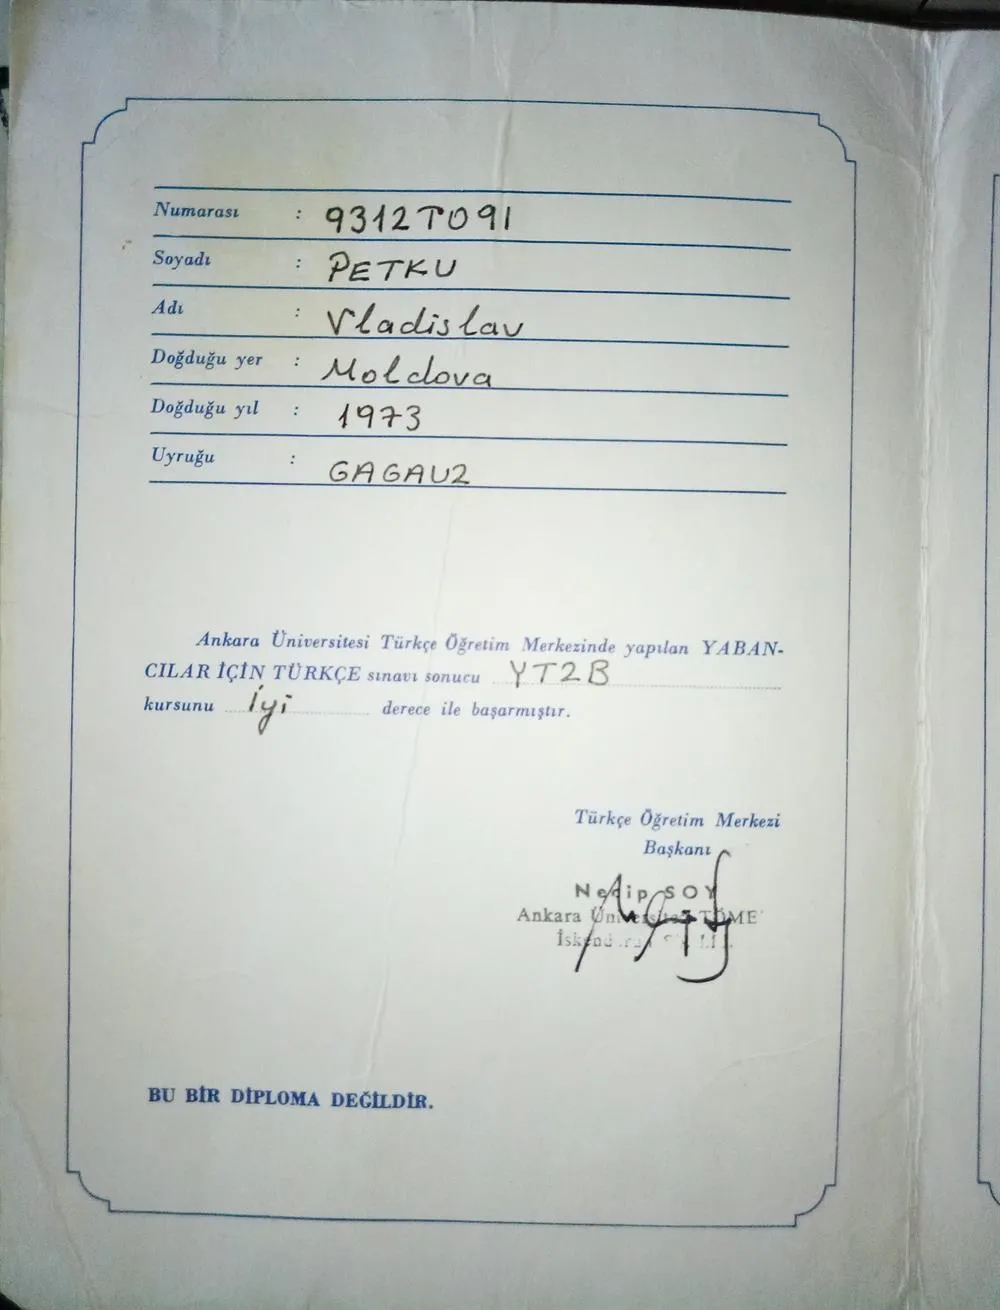 Numarası : 9312T091
Soyadı : PETKU
Adı : Vladislav
Doğduğu yer : Moldova
Doğduğu yıl : 1973
Uyruğu : GAGAUZ
Ankara Üniversitesi Türkçe Öğretim Merkezinde yapılan YABAN-
CILAR İÇİN TÜRKÇE sınavı sonucu YT2B
kursunu İyi derece ile başarmıştır.
Türkçe Öğretim Merkezi
Başkanı
Necip SOY
Ankara Üniversitesi TÖMER
BU BİR DİPLOMA DEĞİLDİR.